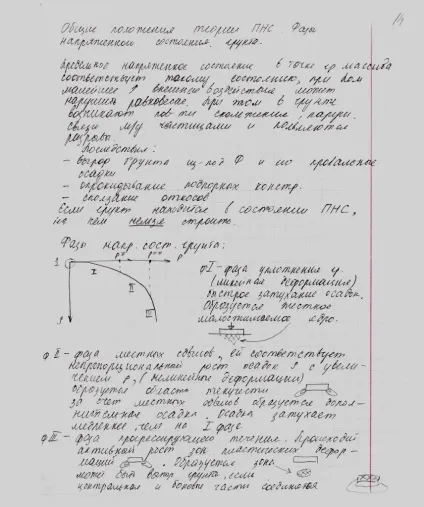 14
Общие положения теории ПНС. Фазы
напряженного состояния грунта.
Предельное напряженное состояние в точке гр массива
соответствует такому состоянию, при ком
малейшее ↑ внешнее воздействие может
нарушить равновесие. При этом в грунте
возникают пов-ти скольжения, наруш.
связи м/у частицами и появляются
разрывы.
Последствия:
- выпор грунта из-под Ф и его провальные
осадки
- опрокидывание подпорных констр.
- сползание откосов
Если грунт находится в состоянии ПНС,
на нем нельзя строить.
Фазы напр. сост. грунта:
1 P
I
II
III
S
ф I - фаза уплотнения гр
(линейная деформация)
быстрое затухание осадок.
Образуется жесткое
малосжимаемое ядро.
ф II - фаза местных сдвигов, ей соответствует
непропорциональный рост осадок S с увели-
чением р, (нелинейные деформации)
образуются области текучести
за счет местных сдвигов образуется допол-
нительная осадка. Осадка затухает
медленнее чем на I фазе.
ф III - фаза прогрессирующего течения. Происходит
активный рост зон пластических дефор-
маций. Образуется зона
может быть выпор грунта, если
центральная и боковые части соединятся